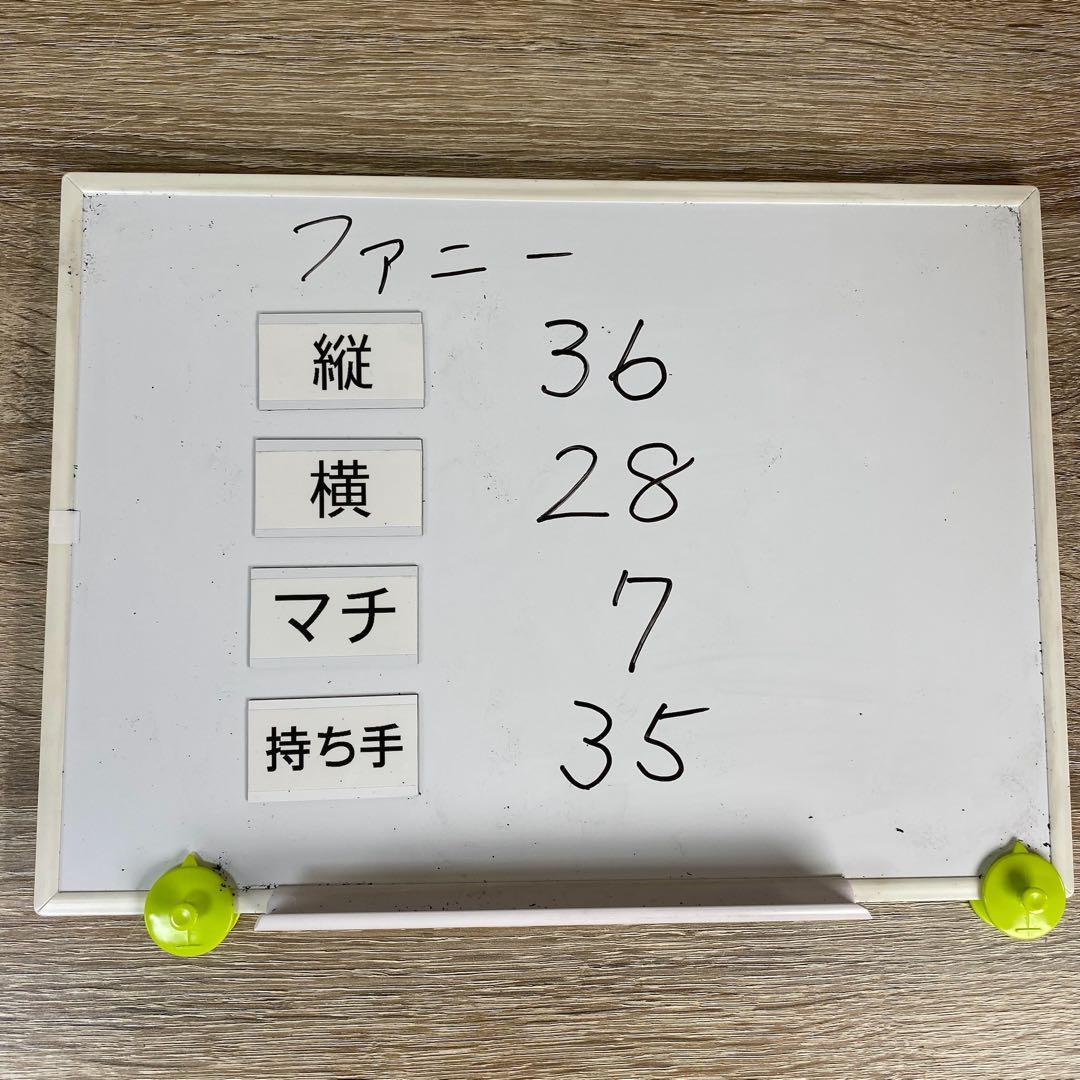 ファニー
縦 36
横 28
マチ 7
持ち手 35